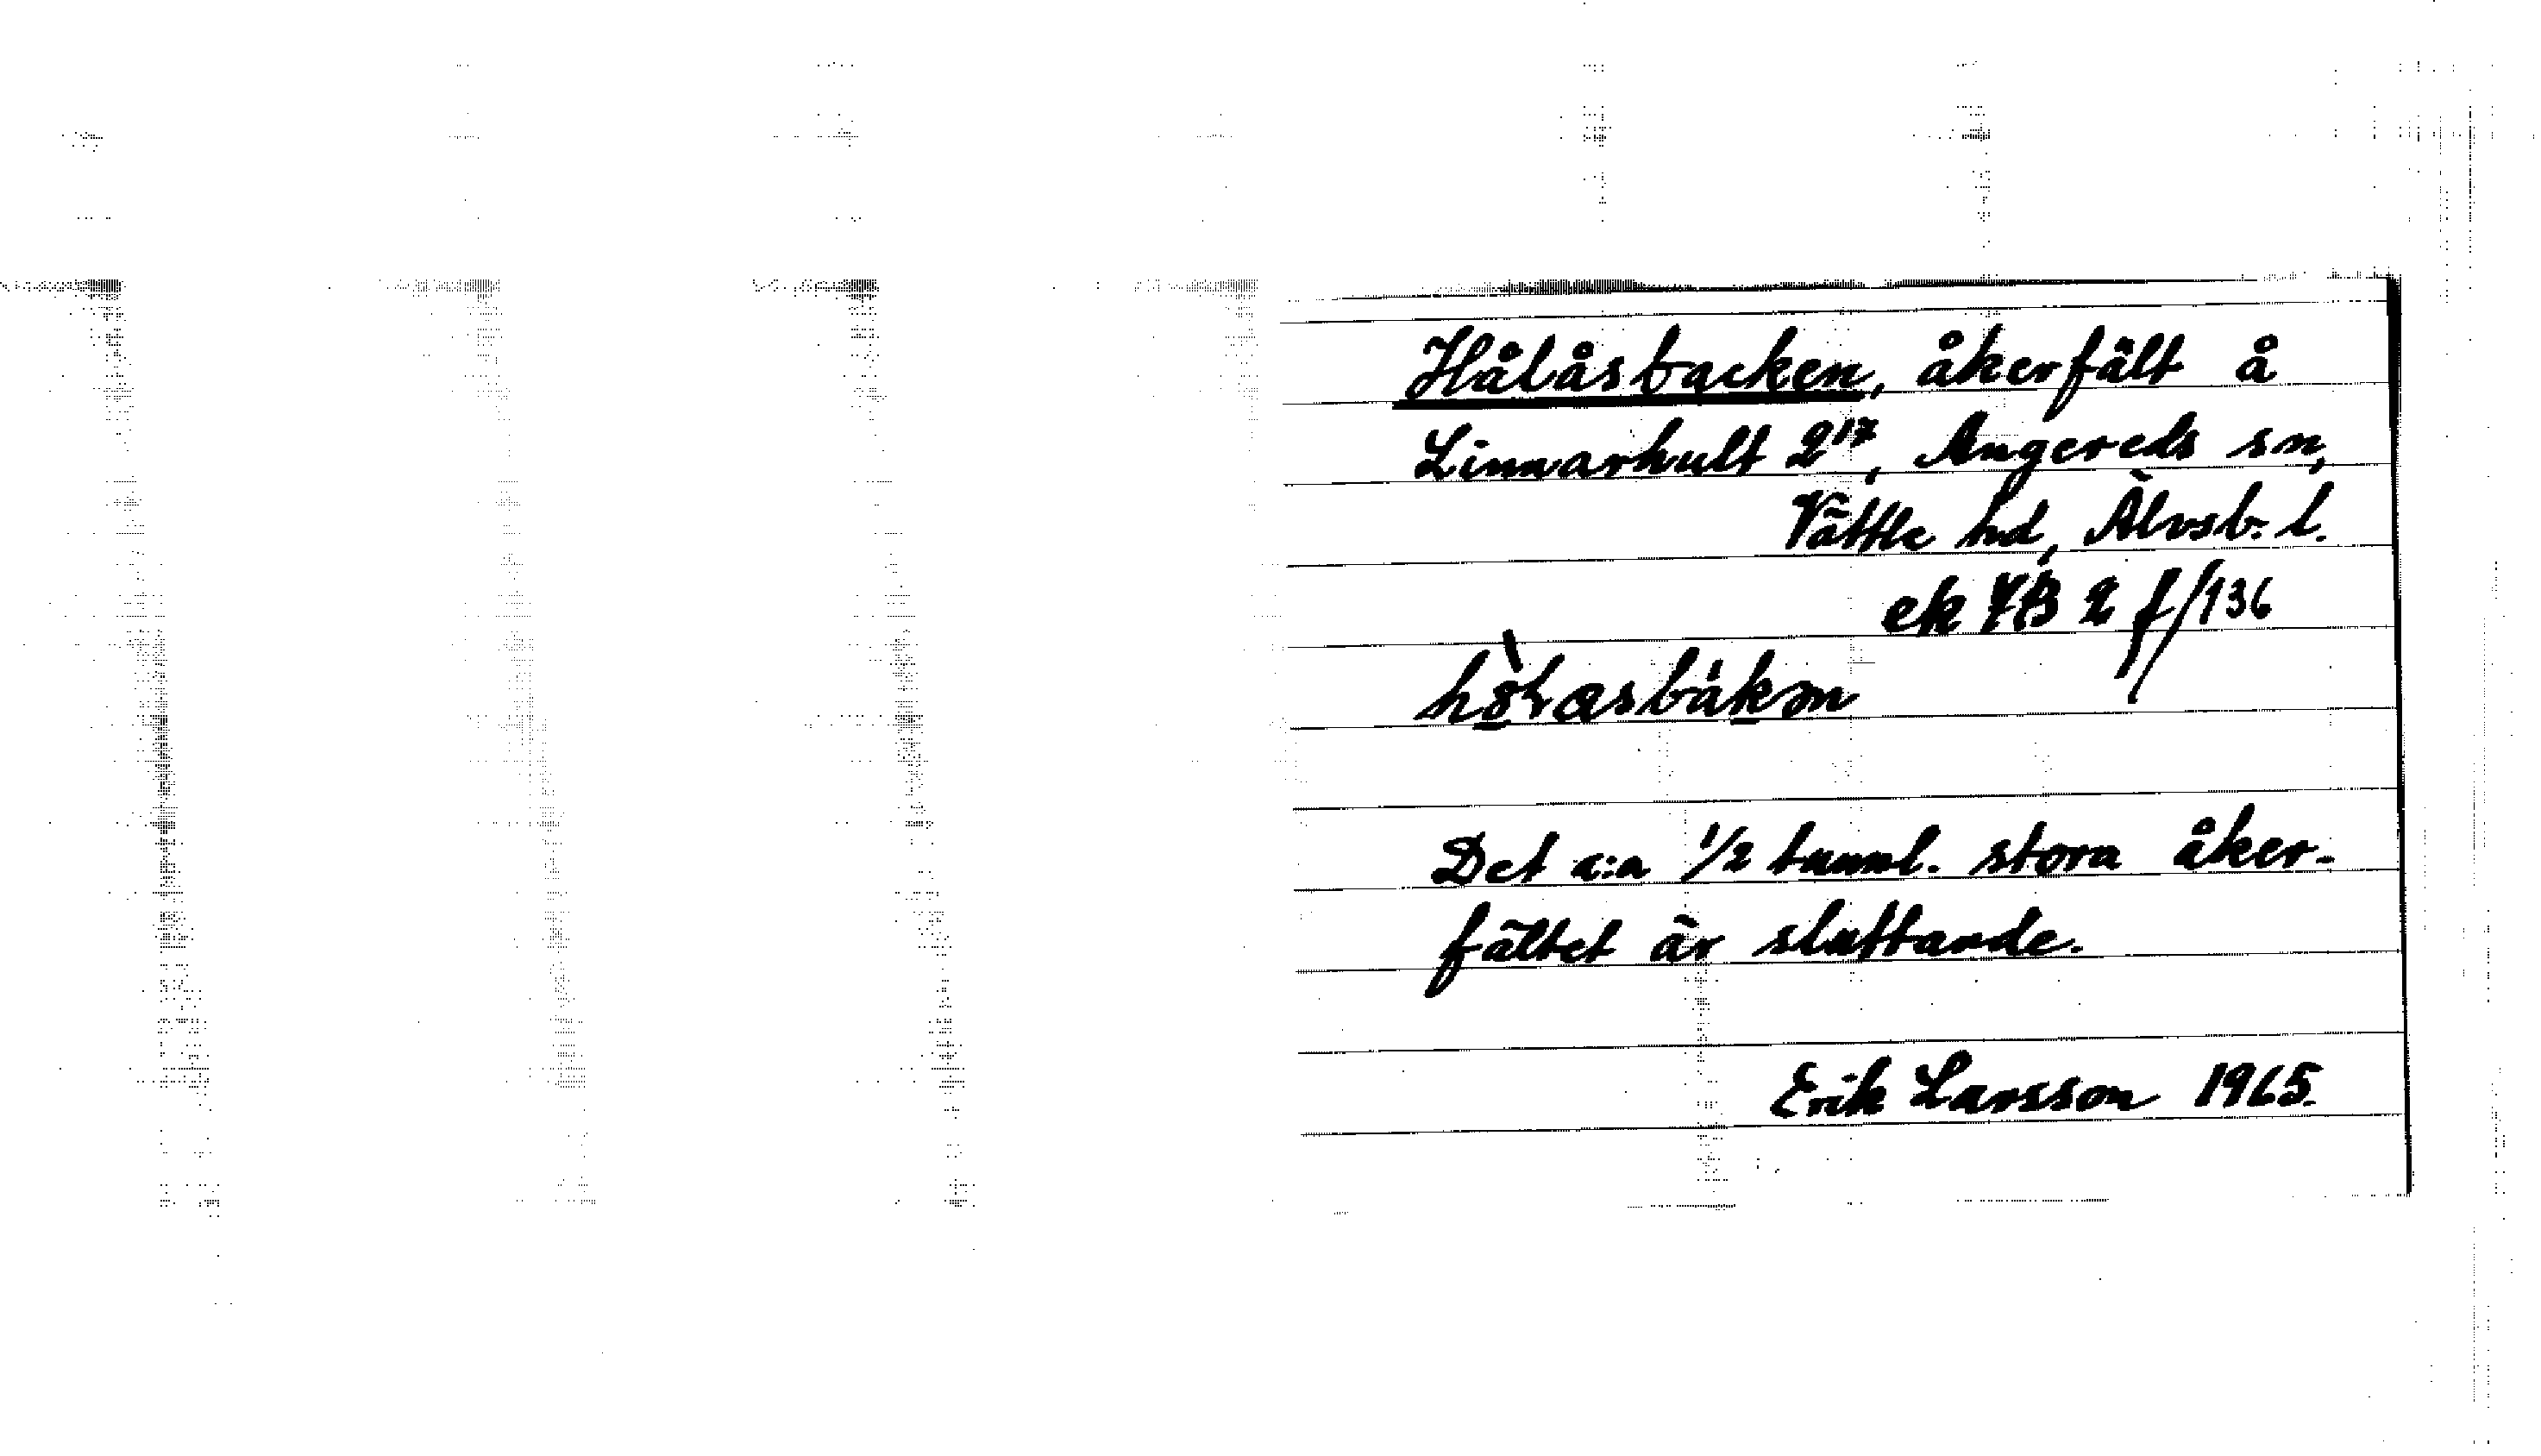 Hålåsbacken, åkerfält å
Linnarhult 2¹⁷, Angereds sn,
Vättle hd, Älvsb. l.
ek 7B 2 f/136
Det c:a 1/2 tunnl. stora åker-
fältet är sluttande.
Erik Larsson 1965.